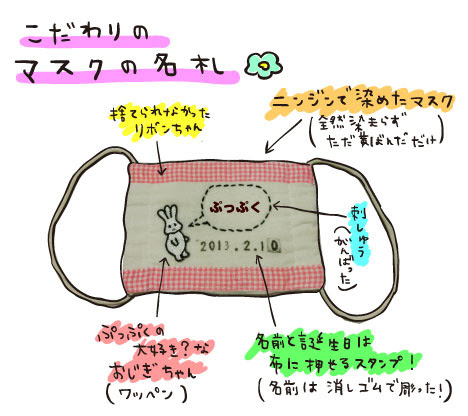 こだわりの
マスクの名札
捨てられなかった
リボンちゃん
ニンジンで染めたマスク
(全然染まらず
ただ黄ばんだだけ)
ぷっぷく
2013.2.10
刺しゅう
(がんばった)
ぷっぷくの
大好き?な
おじぎちゃん
(ワッペン)
名前と誕生日は
布に押せるスタンプ!
(名前は消しゴムで彫った!)